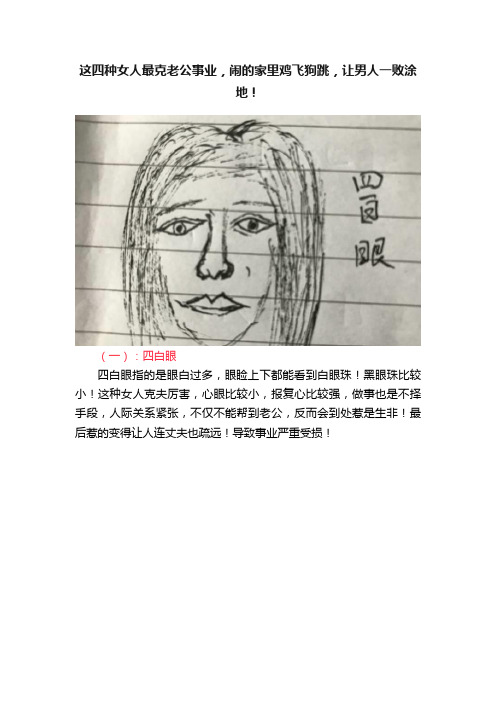 这四种女人最克老公事业，闹的家里鸡飞狗跳，让男人一败涂
地！
四白眼
（一）：四白眼
四白眼指的是眼白过多，眼脸上下都能看到白眼珠！黑眼珠比较
小！这种女人克夫厉害，心眼比较小，报复心比较强，做事也是不择
手段，人际关系紧张，不仅不能帮到老公，反而会到处惹是生非！最
后惹的变得让人连丈夫也疏远！导致事业严重受损！